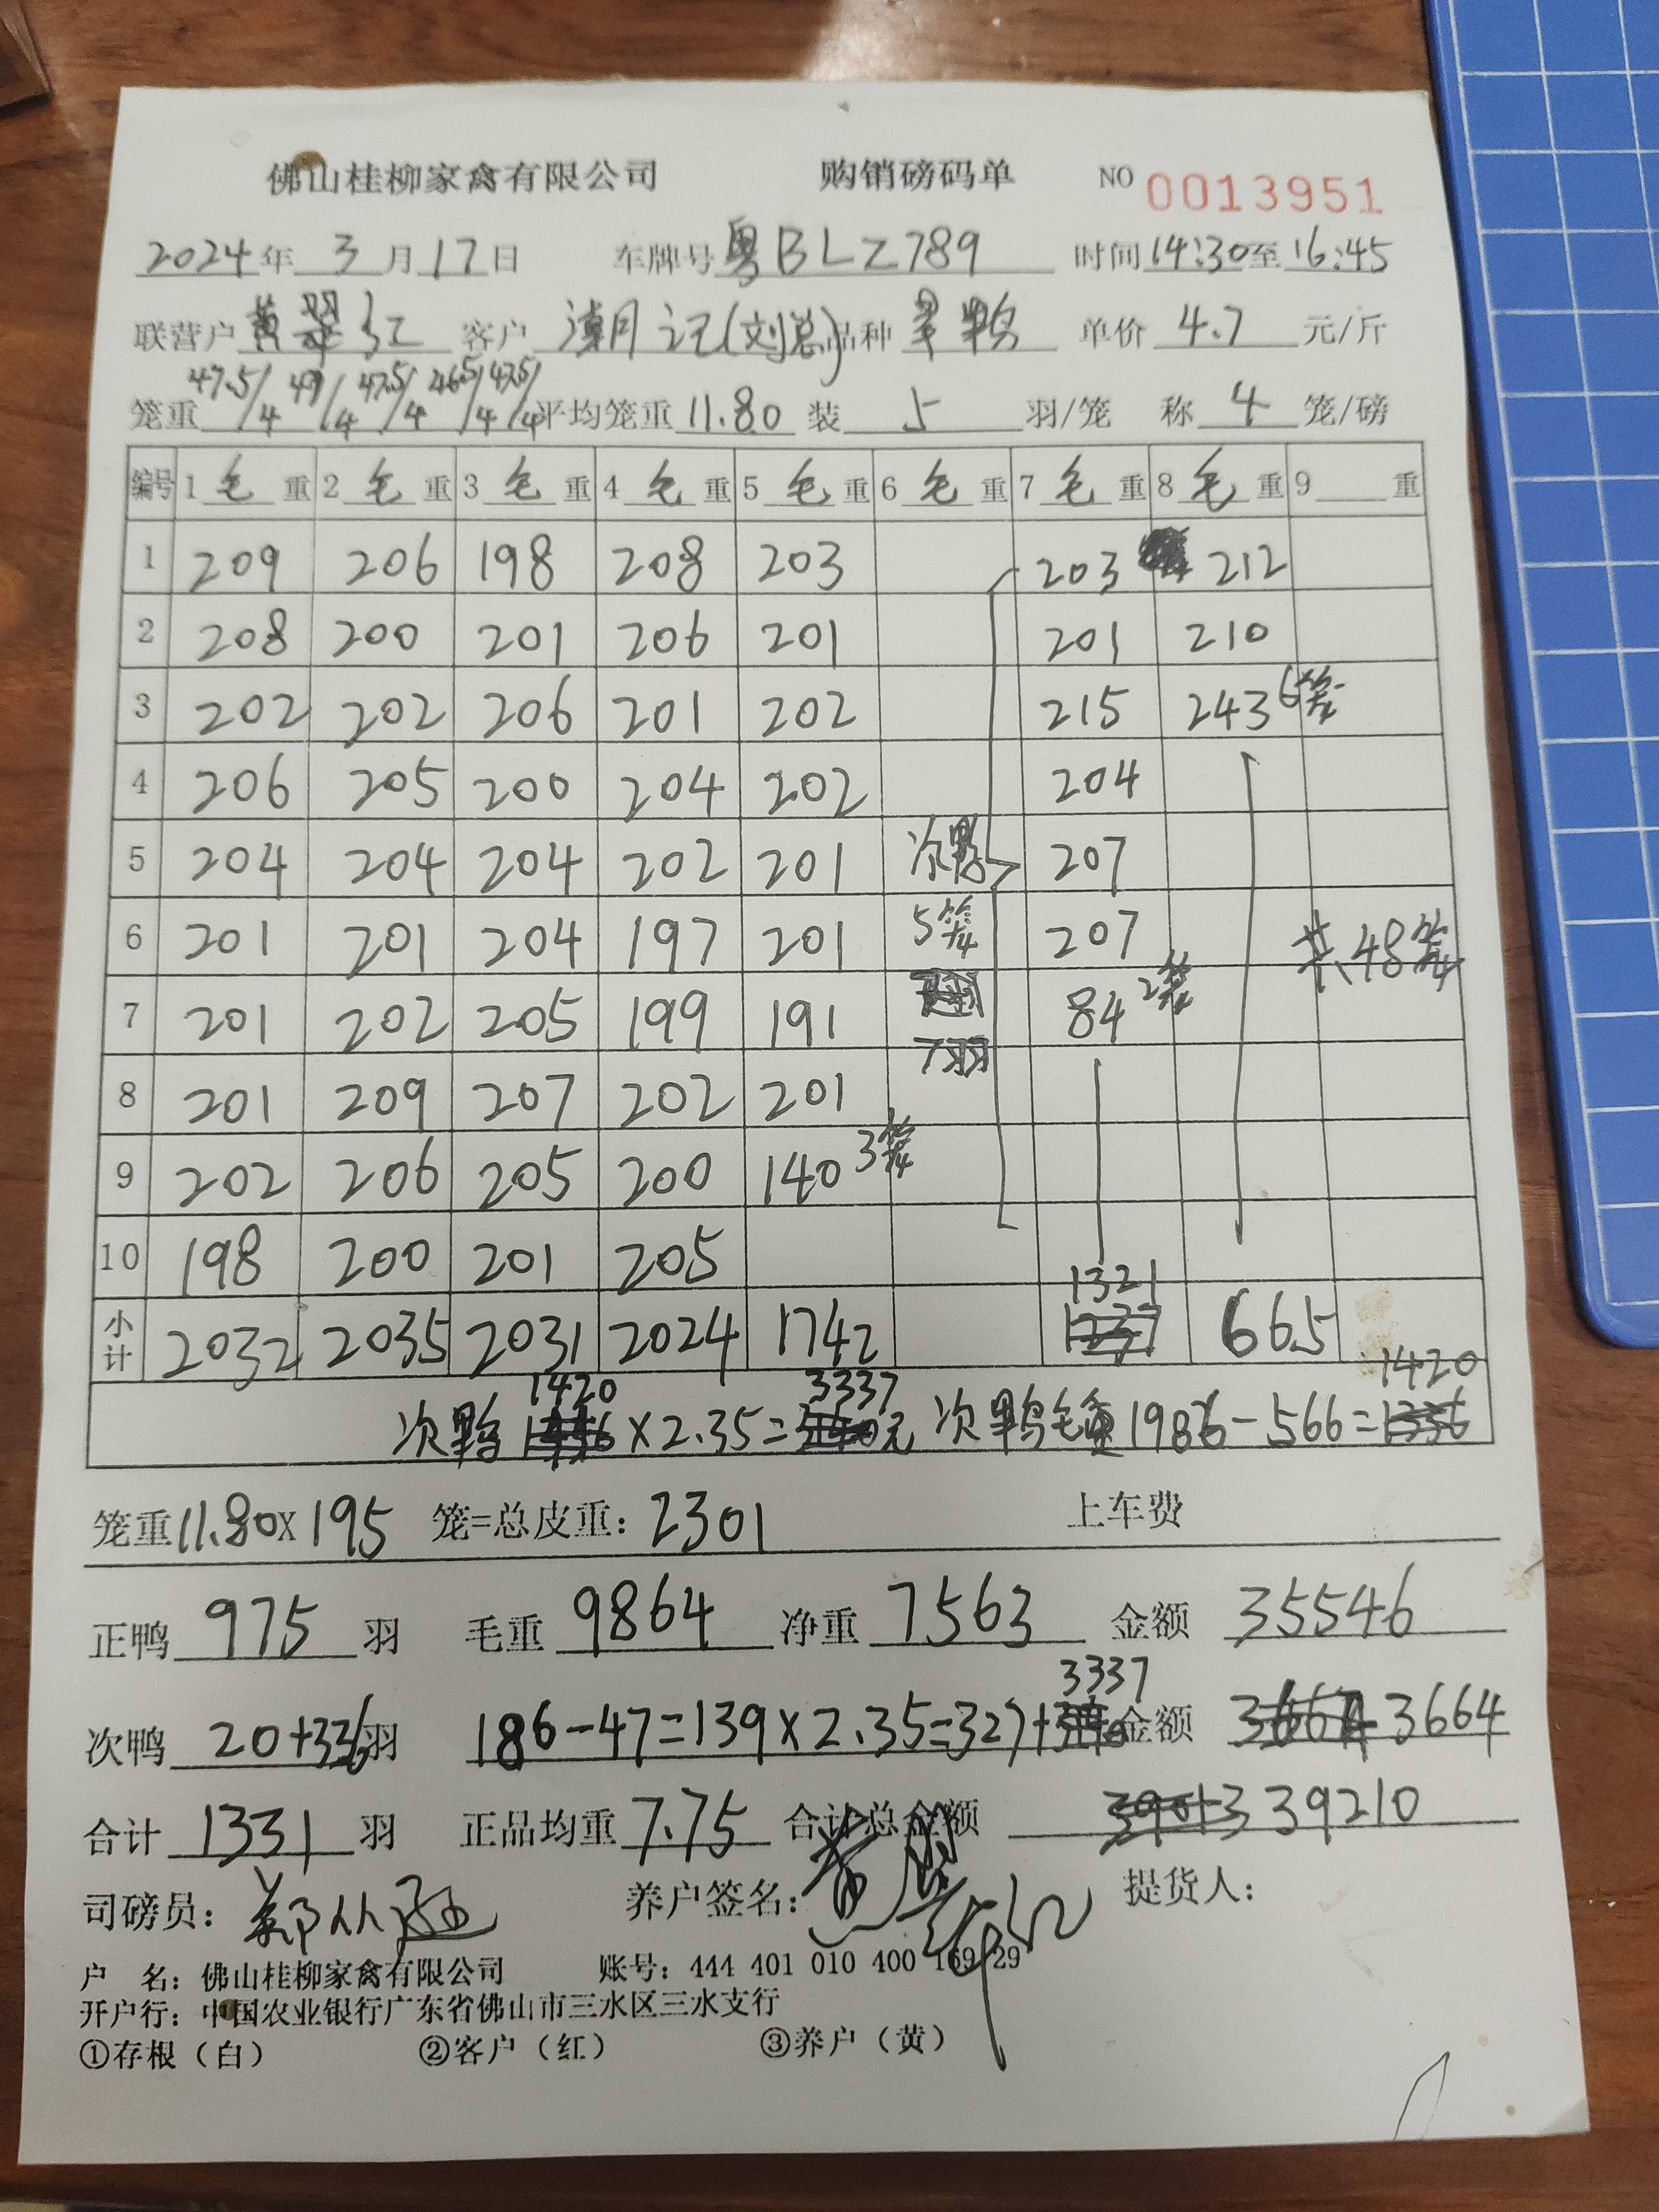 佛山桂柳家禽有限公司 购销磅码单 NO 0013951
2024年 3月17日 车牌号 粤BLZ789 时间14:30至16:45
联营户 黄翠红 客户 潮记(刘总) 品种 单价 4.7 元/斤
笼重 47.5/4 49/4 47.5/4 46.5/4 47.5/4 平均笼重 11.80 装 5 羽/笼 称 4 笼/磅
编号 1 毛 重 2 毛 重 3 毛 重 4 毛 重 5 毛 重 6 毛 重 7 毛 重 8 毛 重 9 重
1 209 206 198 208 203 203 212
2 208 200 201 206 201 201 210
3 202 202 206 201 202 215 243 6笼
4 206 205 200 204 202 204
5 204 204 204 202 201 次鸭 207
6 201 201 204 197 201 5笼 207 共48笼
7 201 202 205 199 191 84 2笼
8 201 209 207 202 201 7羽
9 202 206 205 200 140 3笼
10 198 200 201 205
小计 2032 2035 2031 2024 1742 1321 665
次鸭 1420 × 2.35 = 3337 元 次鸭毛重 1986 - 566 = 1420
笼重 11.80 X 195 笼=总皮重: 2301 上车费
正鸭 975 羽 毛重 9864 净重 7563 金额 35546
次鸭 20+336 羽 186-47=139×2.35=327+3337 金额 3664
合计 1331 羽 正品均重 7.75 合计总金额 39210
司磅员: 养户签名: 提货人:
户 名: 佛山桂柳家禽有限公司 账号: 444 401 010 400 169 29
开户行: 中国农业银行广东省佛山市三水区三水支行
①存根（白） ②客户（红） ③养户（黄）